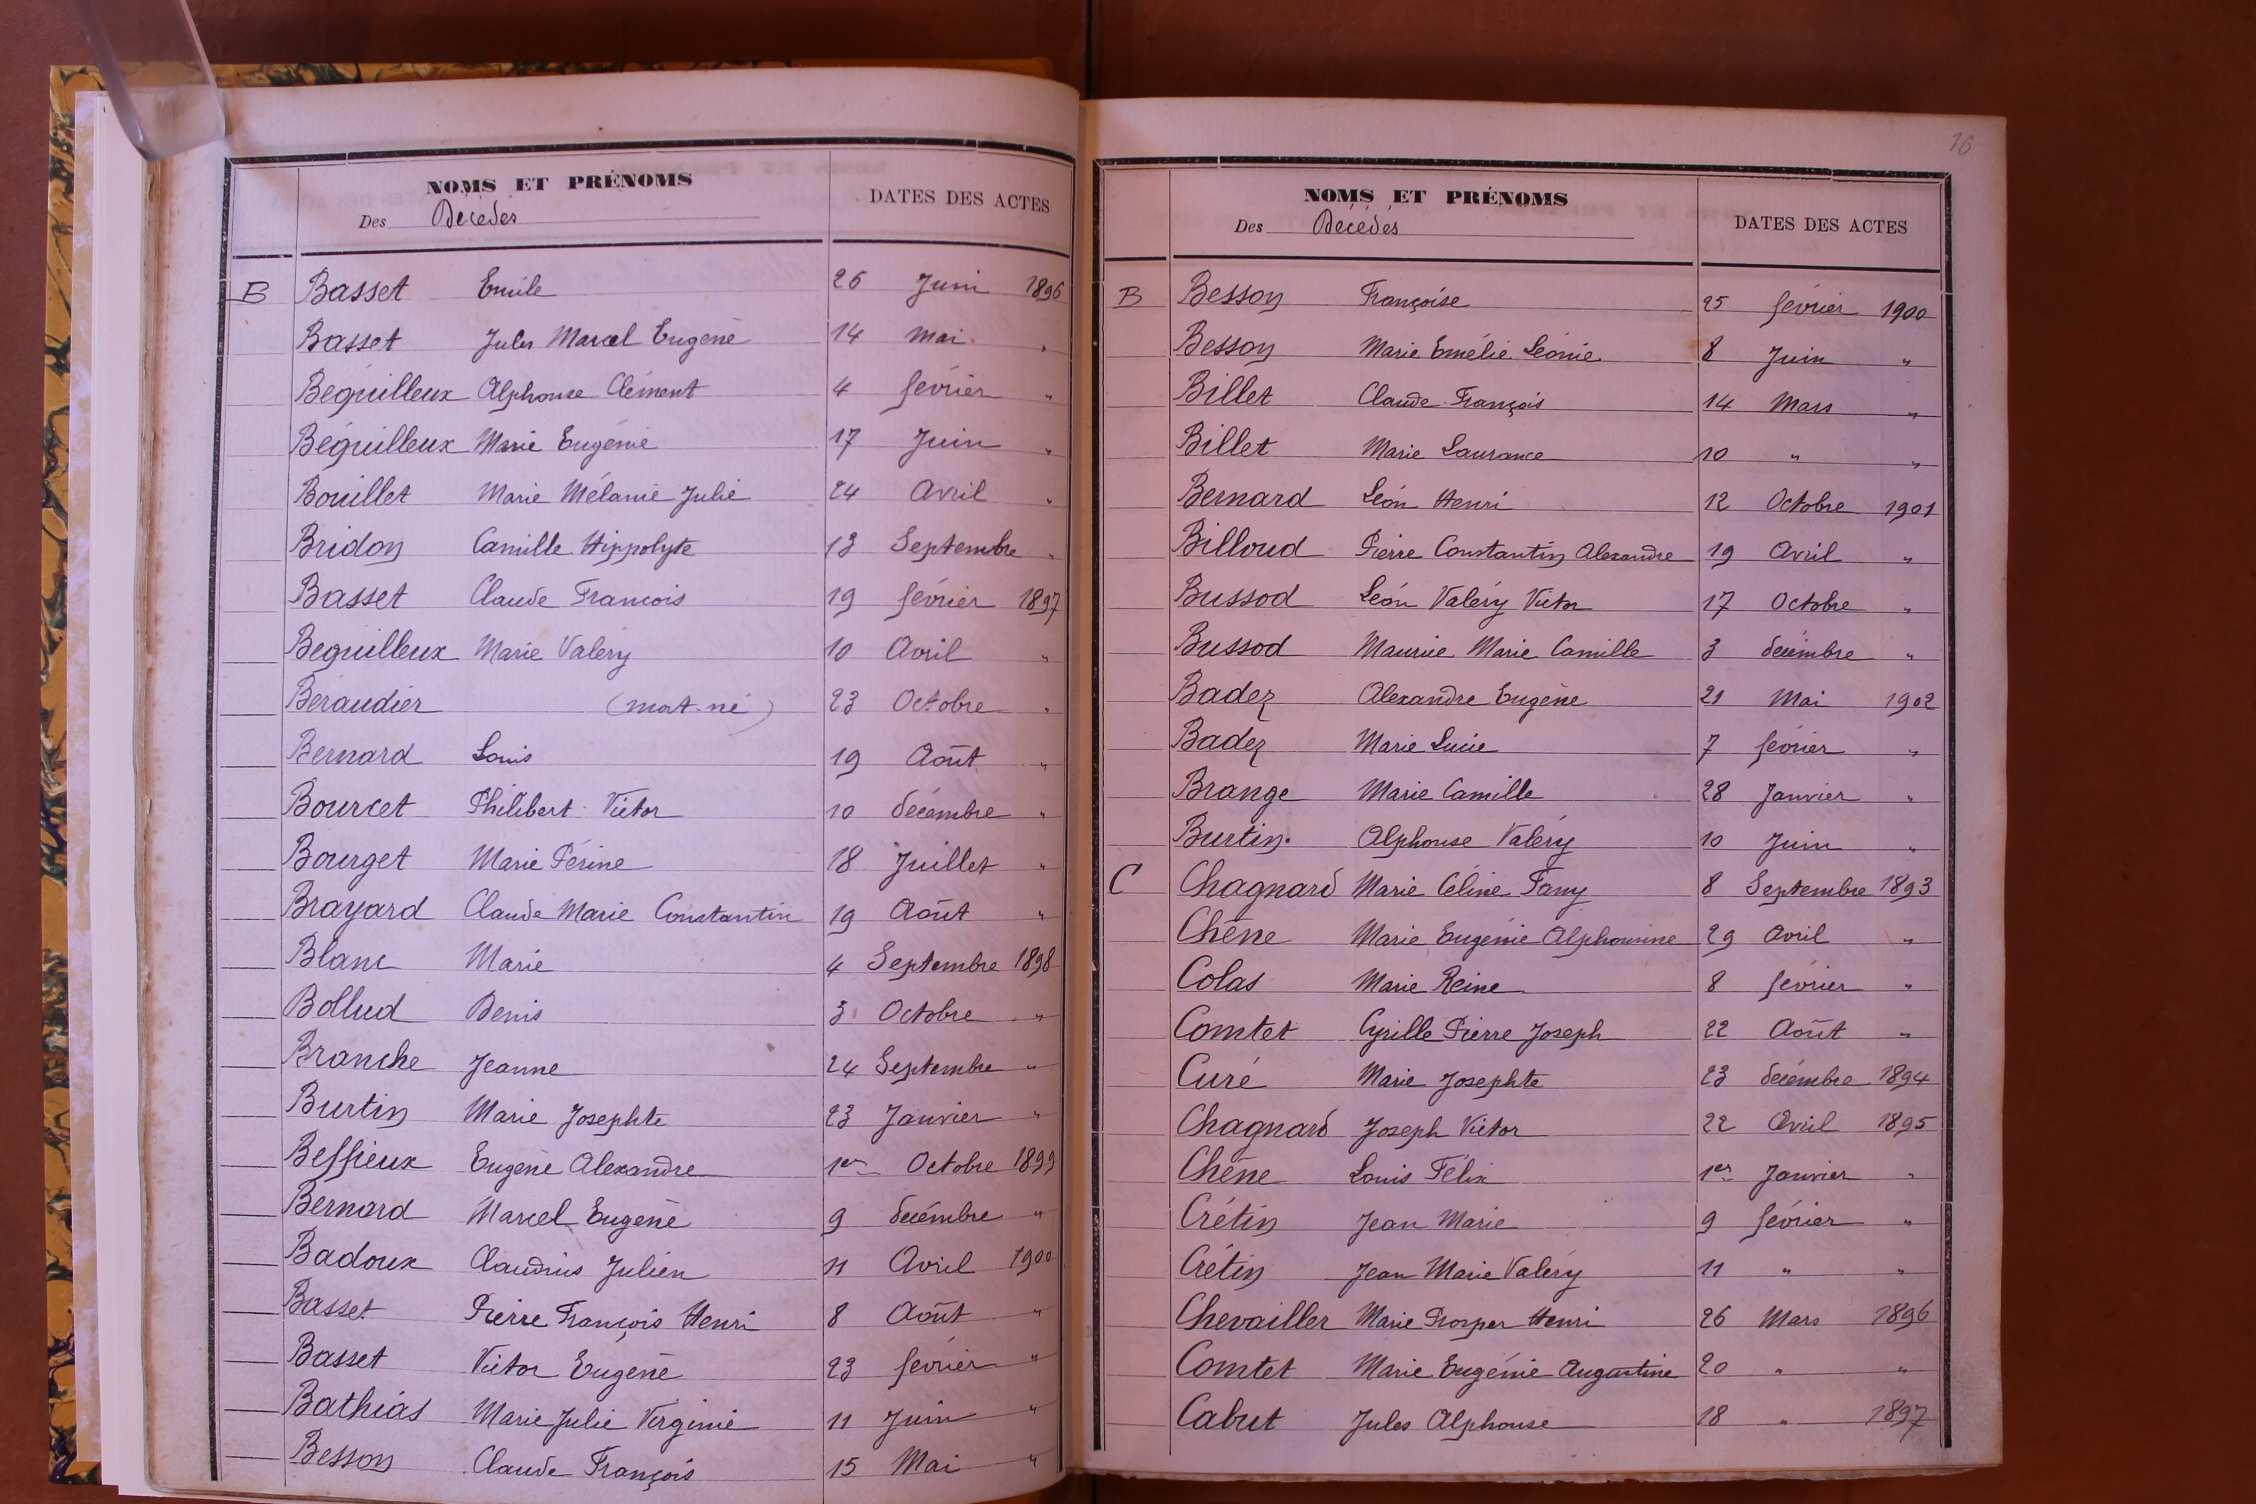 NOMS ET PRÉNOMS
Des Décédés
DATES DES ACTES
B Basset Emile 26 Juin 1896
Basset Jules Marcel Eugène 14 Mai "
Béguilleux Alphonse Clément 4 février "
Béguilleux Marie Eugénie 17 Juin "
Bouillet Marie Mélanie Julie 24 Avril "
Bridon Camille Hippolyte 13 Septembre "
Basset Claude Francois 19 février 1897
Beguilleux Marie Valéry 10 Avril "
Béraudier (mort-né) 23 Octobre "
Bernard Louis 19 Août "
Bourcet Philibert Victor 10 décembre "
Bourget Marie Périne 18 Juillet "
Brayard Claude Marie Constantin 19 Août "
Blanc Marie 4 Septembre 1898
Bollud Denis 3 Octobre "
Branche Jeanne 24 Septembre "
Burtin Marie Josephte 23 Janvier "
Beffieux Eugène Alexandre 1er Octobre 1899
Bernard Marcel Eugène 9 décembre "
Badoux Claudius Julien 11 Avril 1900
Basset Pierre François Henri 8 Août "
Basset Victor Eugène 23 février "
Bathias Marie Julie Virginie 11 Juin "
Besson Claude François 15 Mai "
16
NOMS ET PRÉNOMS
Des Décédés
DATES DES ACTES
B Besson Françoise 25 février 1900
Besson Marie Emélie Léonie 8 Juin "
Billet Claude François 14 Mars "
Billet Marie Laurance 10 " "
Bernard Léon Henri 12 Octobre 1901
Billoud Pierre Constantin Alexandre 19 Avril "
Bussod Léon Valéry Victor 17 Octobre "
Bussod Maurice Marie Camille 3 décembre "
Badez Alexandre Eugène 21 Mai 1902
Badez Marie Lucie 7 février "
Brange Marie Camille 28 Janvier "
Burtin Alphonse Valéry 10 Juin "
C Chagnard Marie Céline Fany 8 Septembre 1893
Chêne Marie Eugénie Alphonsine 29 Avril "
Colas Marie Reine 8 février "
Comtet Cyrille Pierre Joseph 22 Août "
Curé Marie Josephte 23 décembre 1894
Chagnard Joseph Victor 22 Avril 1895
Chêne Louis Félix 1er Janvier "
Crétin Jean Marie 9 février "
Crétin Jean Marie Valéry 11 " "
Chevailler Marie Prosper Henri 26 Mars 1896
Comtet Marie Eugénie Augustine 20 " "
Cabut Jules Alphonse 18 " 1897